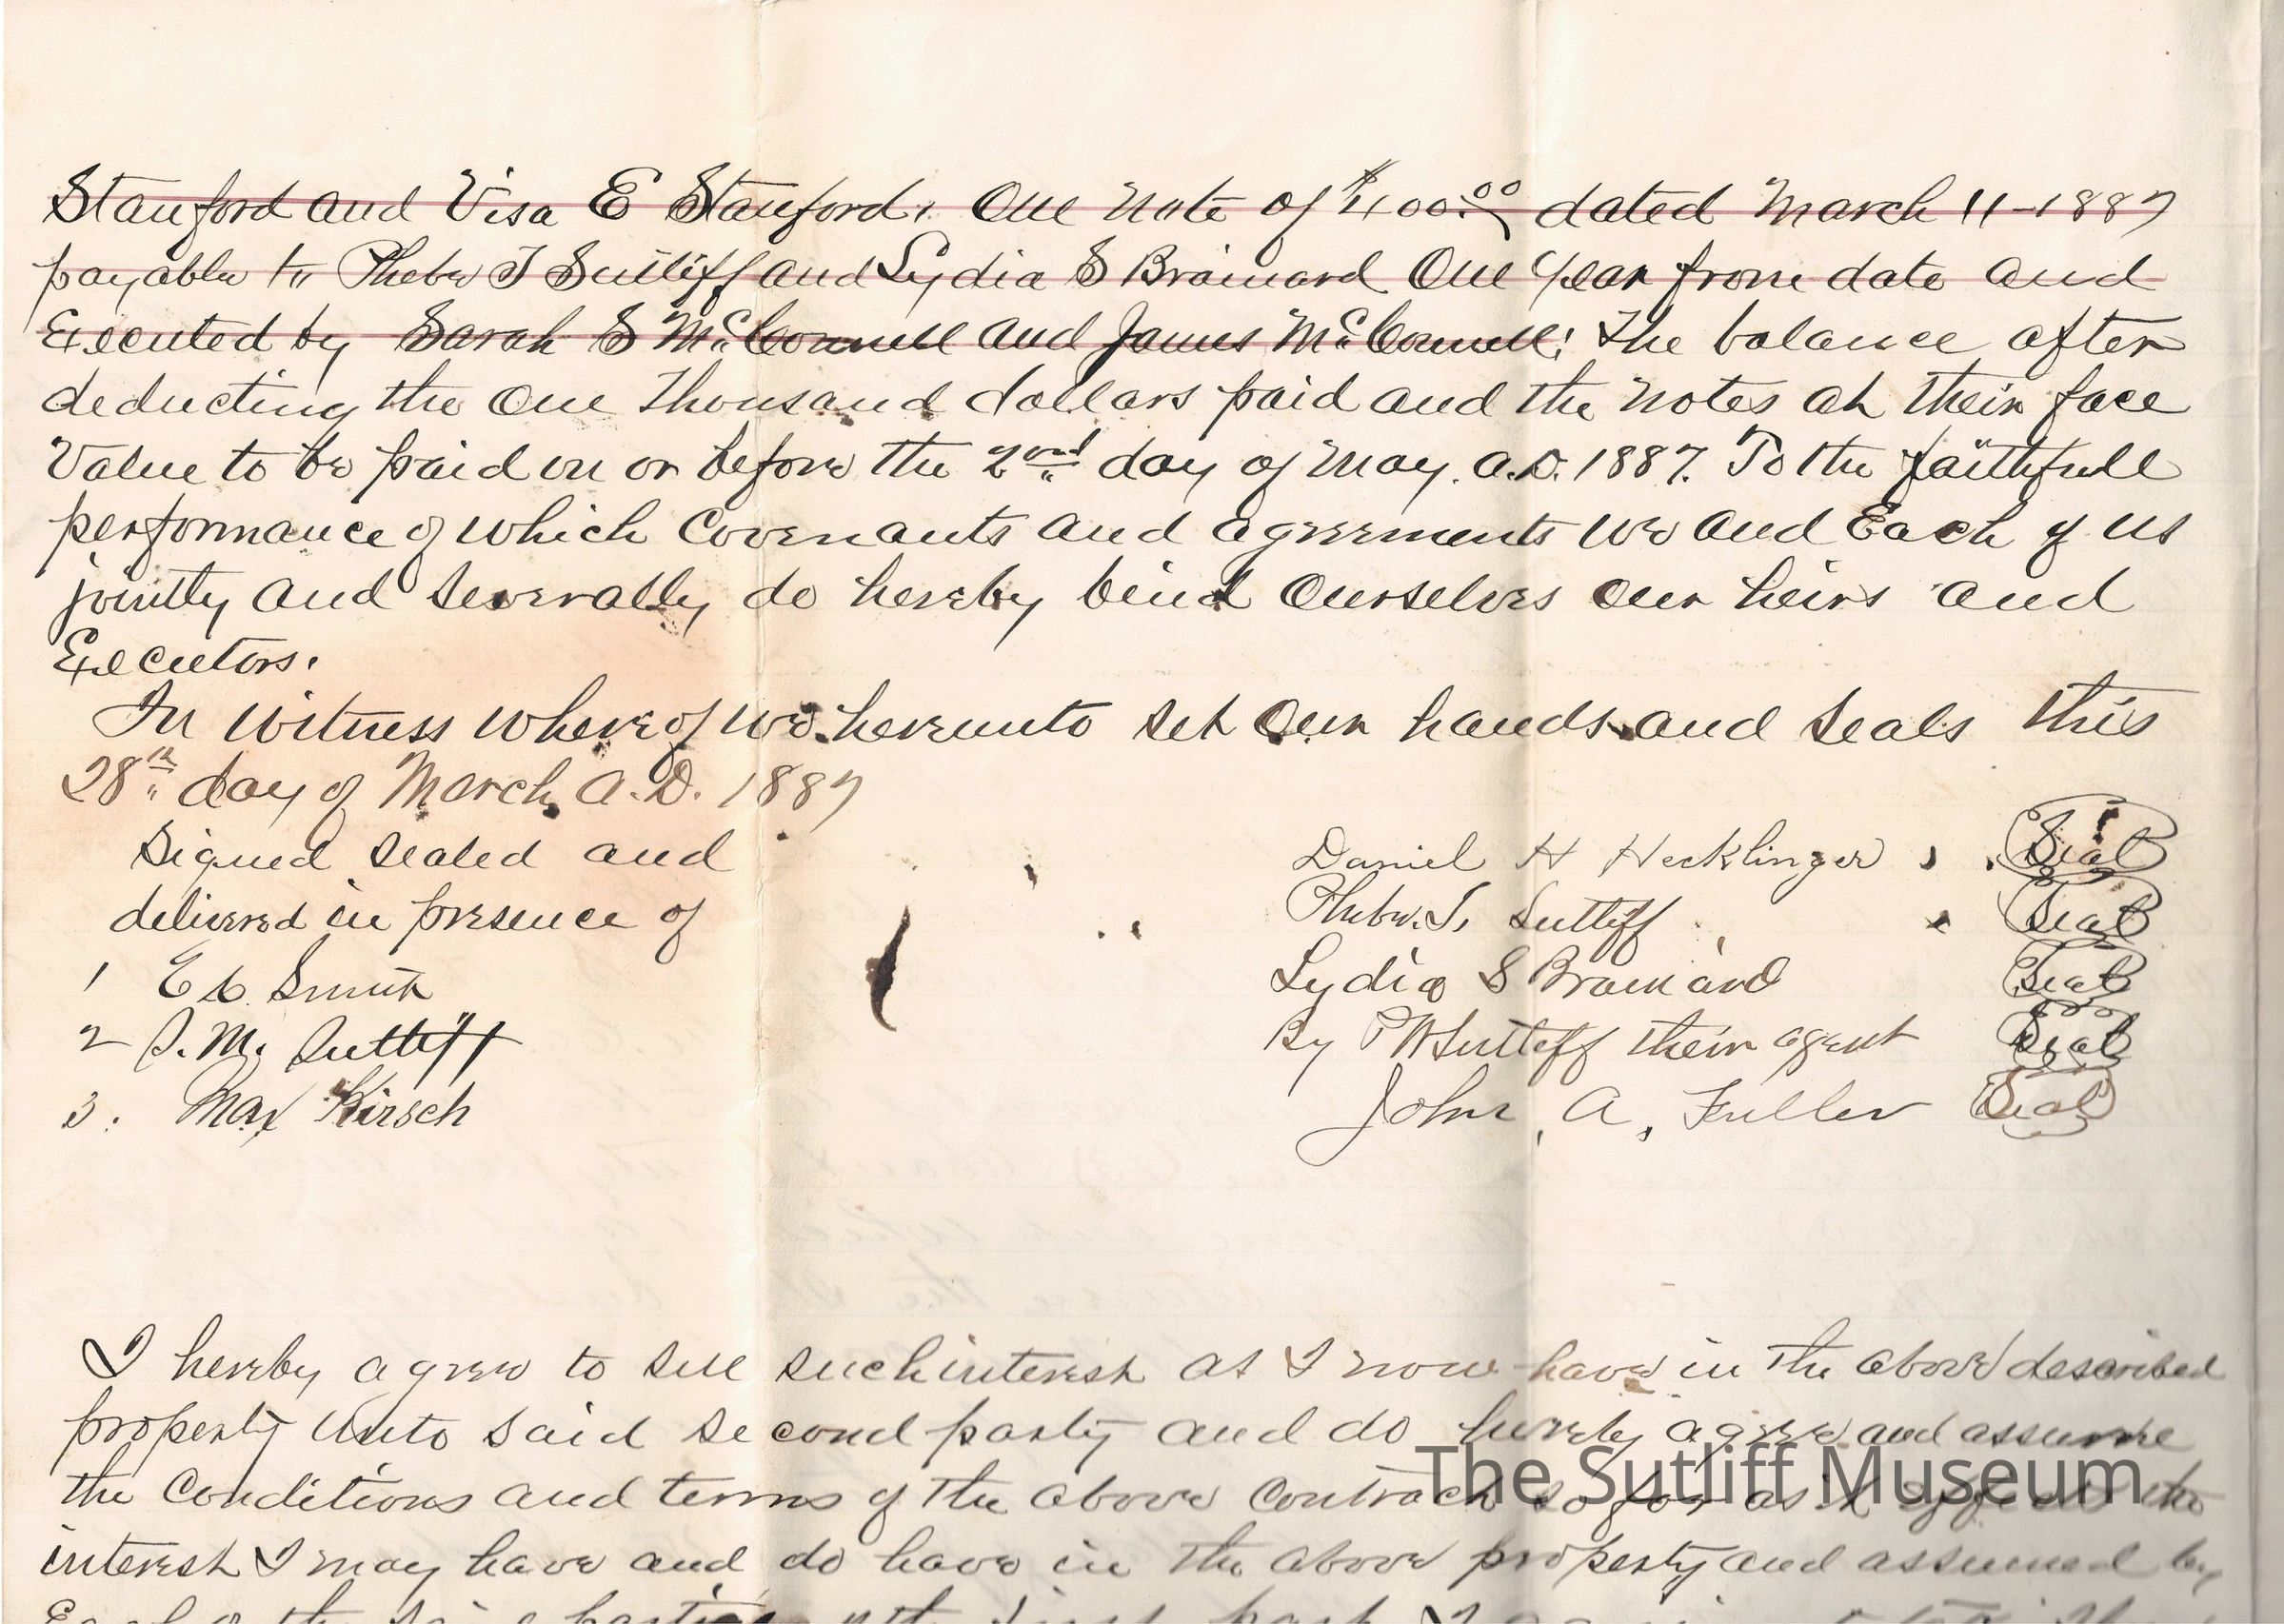 Stanford and Visa E Stanford, One Note of $400.00 dated March 11-1887
payable to Phebe T Sutliff and Lydia S Brainard One Year from date and
Executed by Sarah S McConnell and James McConnell; The balance after
deducting the One Thousand dollars paid and the Notes at their face
Value to be paid on or before the 2nd day of May. A.D. 1887. To the faithfull
performance of which Covenants and agreements we and Each of us
jointly and severally do hereby bind Ourselves Our heirs and
Executors.
In Witness Whereof we hereunto set Our hands and seals this
28th day of March A.D. 1887
Signed sealed and
delivered in presence of
Daniel H Hecklinger Seal
Phebe. T. Sutliff Seal
Lydia S Brainard Seal
By P W Sutliff their agent Seal
John A. Fuller Seal
1 E C Smith
2 S. M. Sutliff
3. Max Kirsch
I hereby agree to sell such interest as I now have in the above described
property unto said second party and do hereby agree and assume
the Conditions and terms of the above Contract so far as it the
interest I may have and do have in the above property and assumed by
The Sutliff Museum